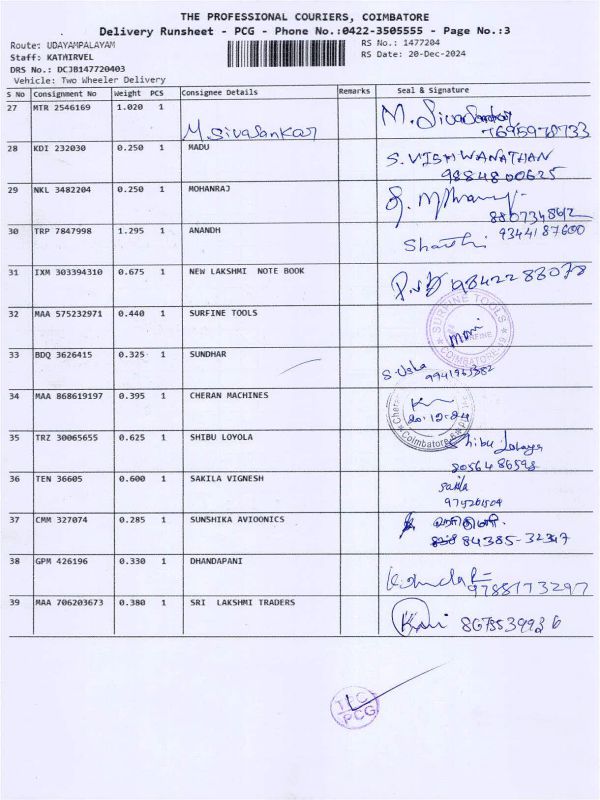 THE PROFESSIONAL COURIERS, COIMBATORE
Delivery Runsheet - PCG - Phone No.:0422-3505555 - Page No.:3
Route: UDAYAMPALAYAM RS No.: 1477204
Staff: KATHIRVEL RS Date: 20-Dec-2024
DRS No.: DCJ8147720403
Vehicle: Two Wheeler Delivery
S No Consignment No Weight PCS Consignee Details Remarks Seal & Signature
27 MTR 2546169 1.020 1 M. Sivasankar M. Sivasankar
7695978733
28 KDI 232030 0.250 1 MADU S. VISHWANATHAN
9884800625
29 NKL 3482204 0.250 1 MOHANRAJ
30 TRP 7847998 1.295 1 ANANDH 9344187600
31 IXM 303394310 0.675 1 NEW LAKSHMI NOTE BOOK 9842283078
32 MAA 575232971 0.440 1 SURFINE TOOLS SURFINE TOOLS
mani
COIMBATORE
33 BDQ 3626415 0.325 1 SUNDHAR S. Usha
34 MAA 868619197 0.395 1 CHERAN MACHINES
20-12-24
Coimbatore
35 TRZ 30065655 0.625 1 SHIBU LOYOLA Shibu Loyola
36 TEN 36605 0.600 1 SAKILA VIGNESH Sakila
37 CMM 327074 0.285 1 SUNSHIKA AVIOONICS
84385-32347
38 GPM 426196 0.330 1 DHANDAPANI
9788173297
39 MAA 706203673 0.380 1 SRI LAKSHMI TRADERS
TPC
PCG